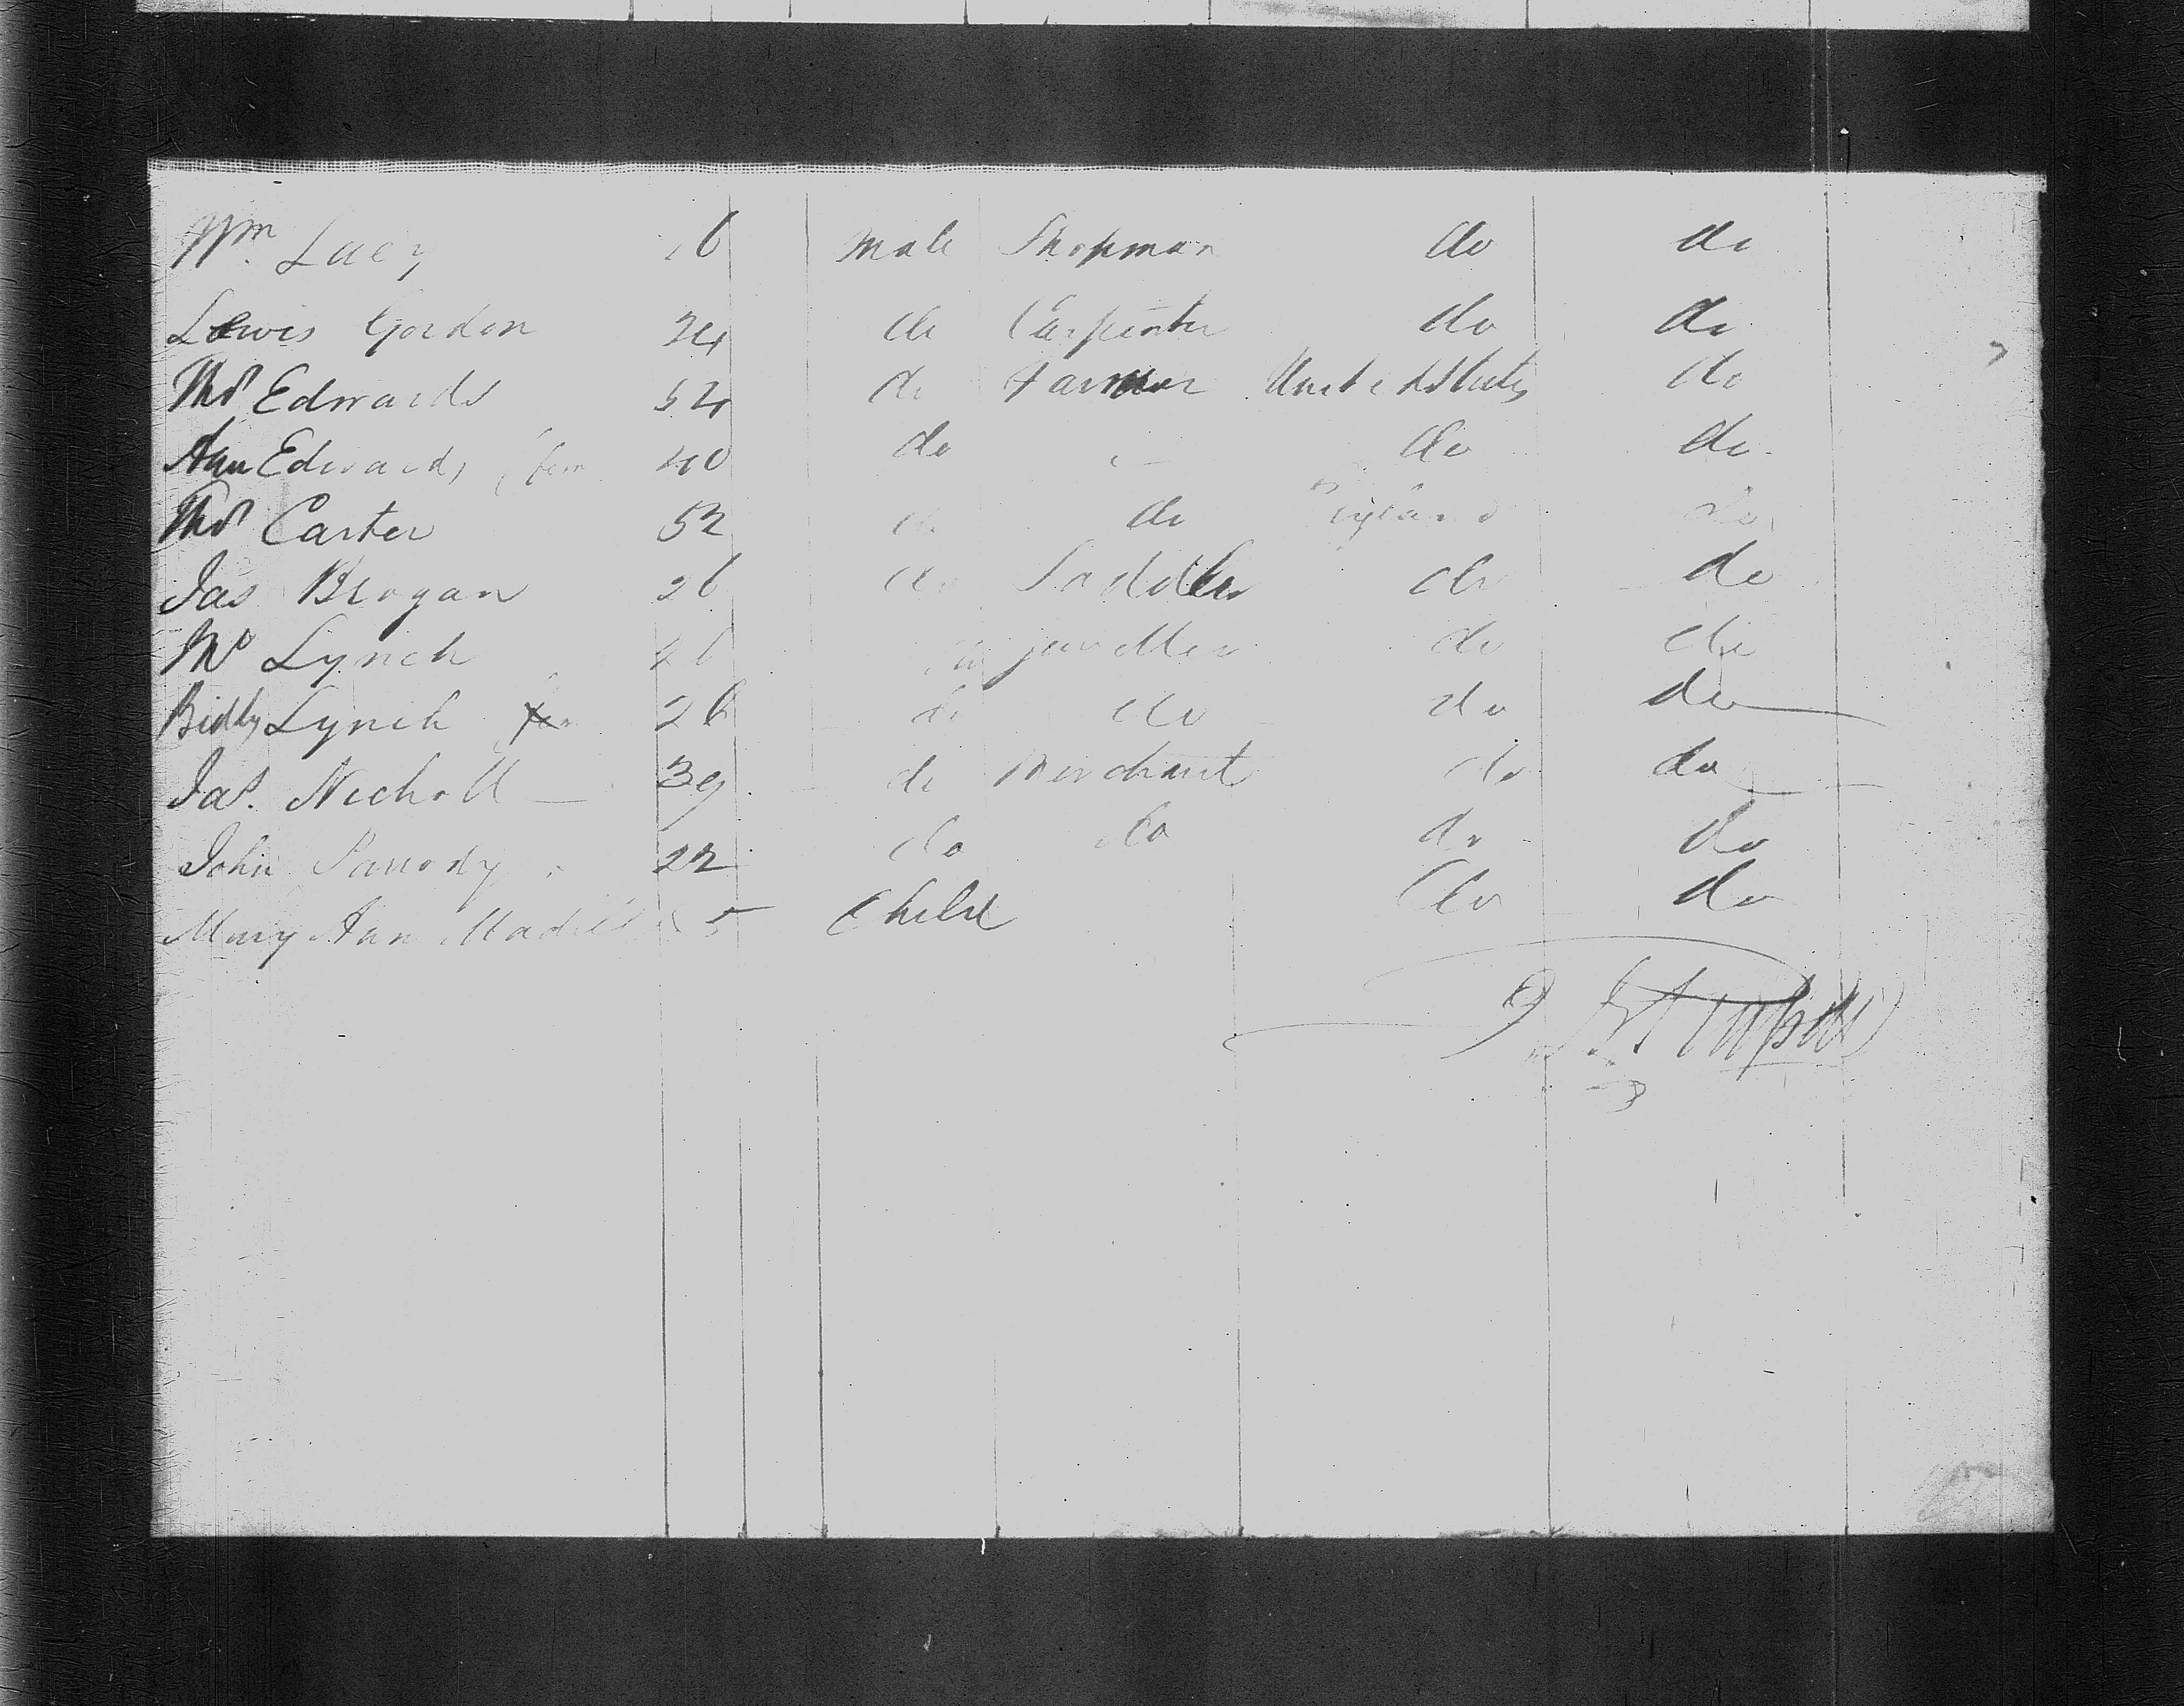 Wm. Lacy 26 male Shopman do do
Lewis Gordon 24 do Carpenter do do
Thos Edwards 54 do Farmer United States do
Ann Edwards fem 40 do — do do
Thos Carter 52 do do England do
Jas Brogan 26 do Saddler do do
Mc Lynch 26 do jeweller do do
Biddy Lynch fem 26 do do do do
Jas. Nicholl 39 do Merchant do do
John 22 do do do do
Mary Ann 5 Child do do